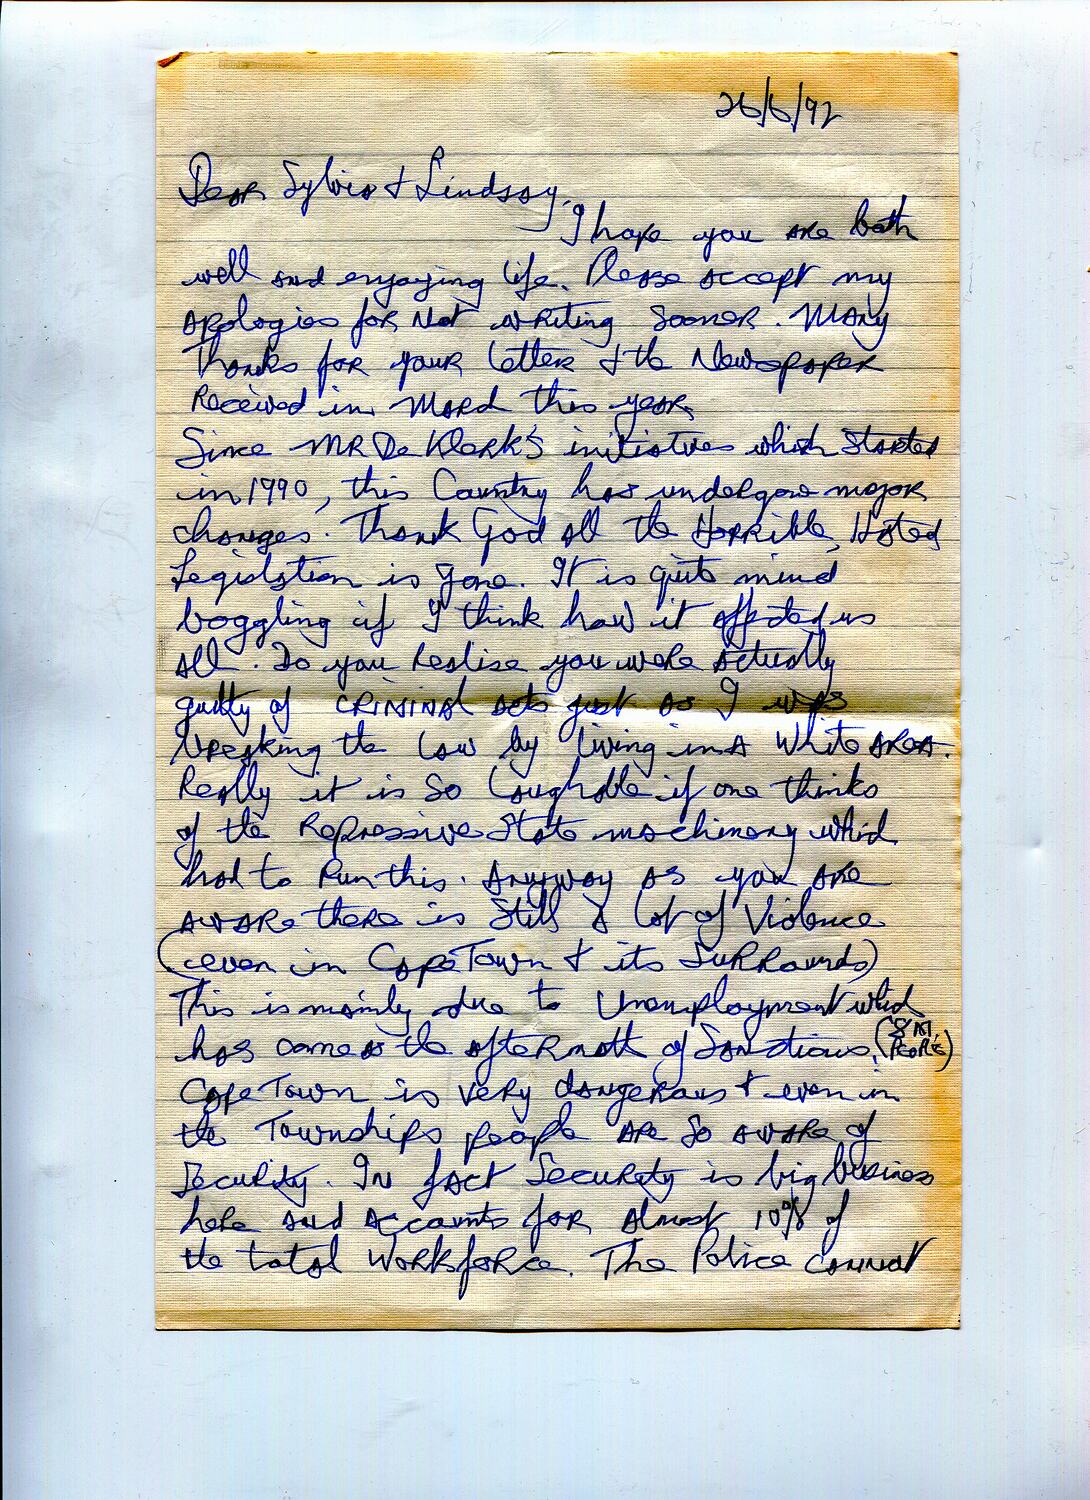 26/6/92
Dear Sylvia & Lindsay,
I hope you are both
well and enjoying life. Please accept my
apologies for not writing sooner. Many
thanks for your letter & the Newspaper
Received in March this year.
Since MR De Klerk's initiatives which started
in 1990, this Country has undergone major
changes. Thank God all the Horrible, Hated
Legislation is gone. It is quite mind
boggling if I think how it affected us
all. Do you Realise you were actually
guilty of CRIMINAL acts just as I was
breaking the law by living in A White AREA.
Really it is so laughable if one thinks
of the Repressive State machinery which
had to Run this. Anyway as you are
aware there is still a lot of Violence
(even in Cape Town & its Surrounds)
This is mainly due to Unemployment which
has come as the aftermath of Sanctions.
Cape Town is very dangerous & even in
the Townships people are so aware of
Security. In fact Security is big business
here and accounts for almost 10% of
the total Workforce. The Police cannot